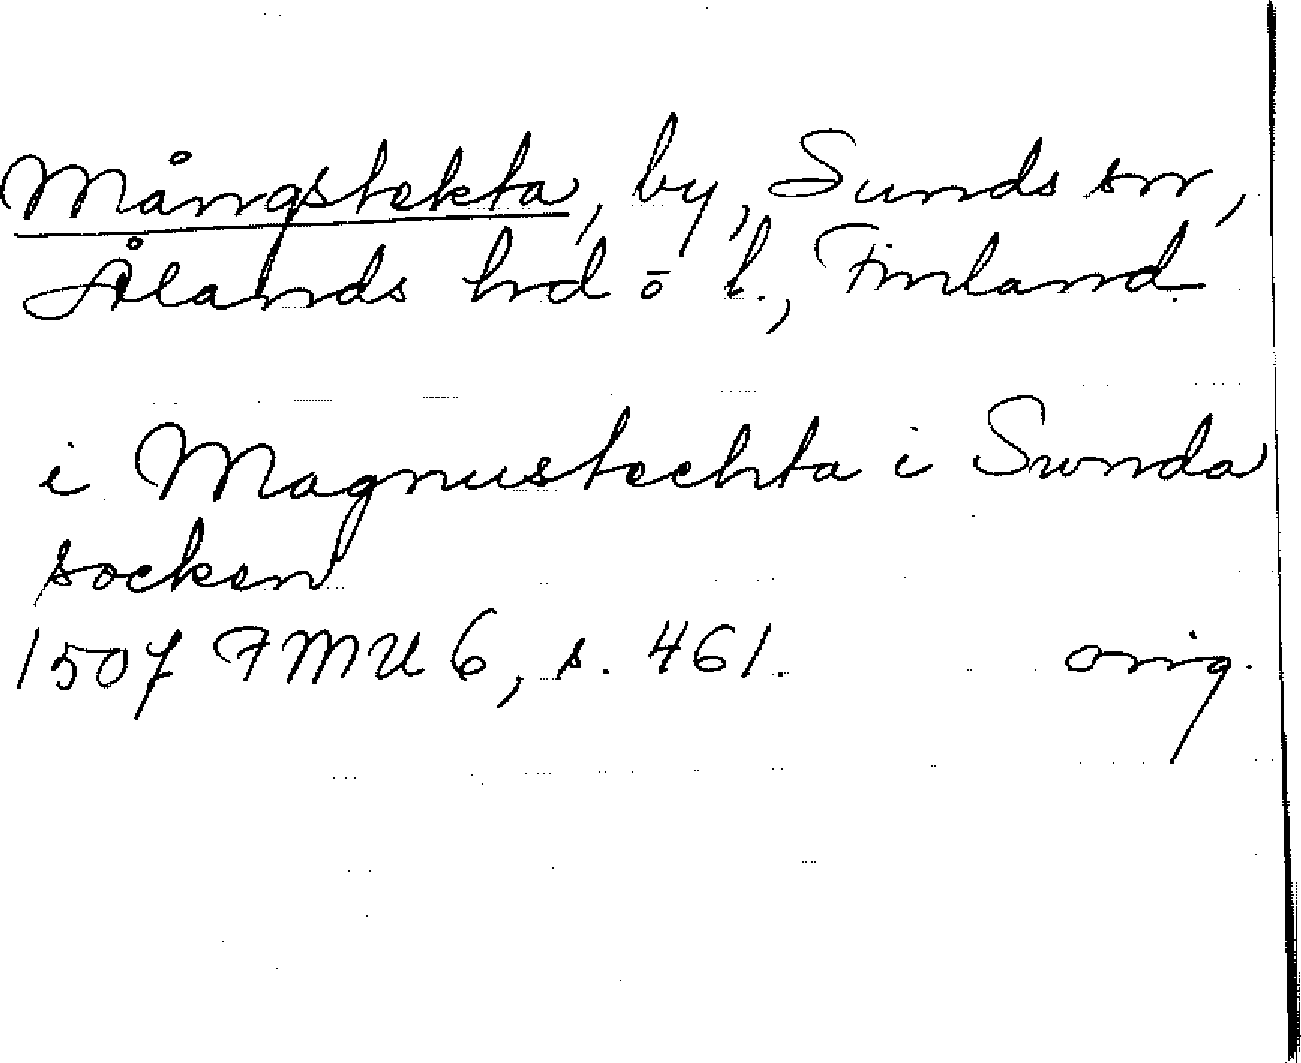 Mångstekta, by, Sunds sn,
Ålands hd o l., Finland
i Magnustechta i Sunda
socken
1507 FMU 6, s. 461. orig.